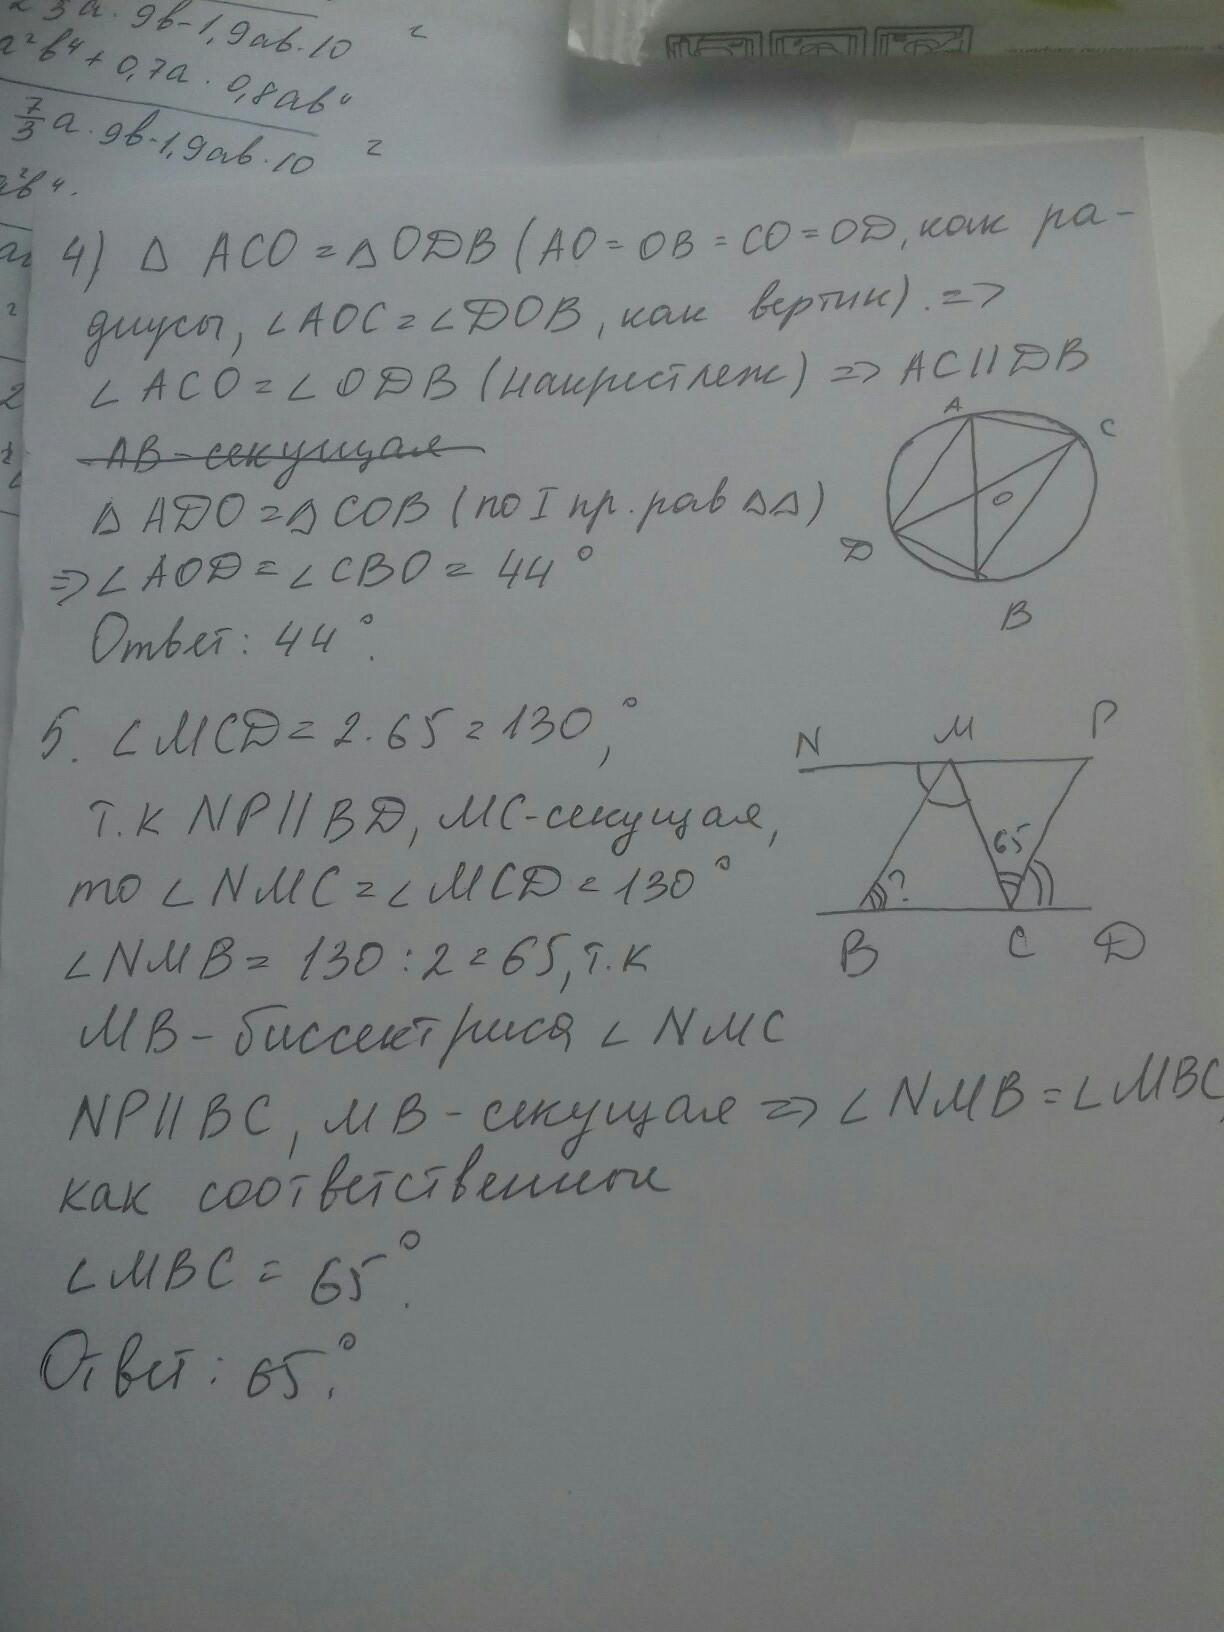 9b-1,9ab·10 =
a²b⁴ + 0,7a · 0,8ab⁴
7/3 a · 9b-1,9ab·10 =
4) Δ ACO = Δ ODB (AO = OB = CO = OD, как ра-
диусы, ∠AOC = ∠DOB, как вертик). =>
∠ ACO = ∠ ODB (накрестлеж) => AC || DB
AB - секущая
Δ ADO = Δ COB (по I пр. рав ΔΔ)
=> ∠AOD = ∠CBO = 44°
Ответ: 44°.
A
C
O
D
B
5. ∠MCD = 2·65 = 130°,
т.к NP || BD, MC-секущая,
то ∠ NMC = ∠MCD = 130°
∠NMB = 130 : 2 = 65, т.к
MB - биссектриса ∠ NMC
NP || BC, MB - секущая => ∠ NMB = ∠MBC,
как соответственные
∠MBC = 65°.
Ответ: 65°.
N M P
65
?
B C D